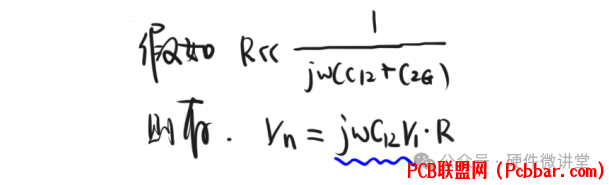 假如 R<< 1/(jω(C12+C2G))
则有. Vn = jωC12V1·R
公众号 · 硬件微讲堂
PCB联盟网（Pcbbar.com）